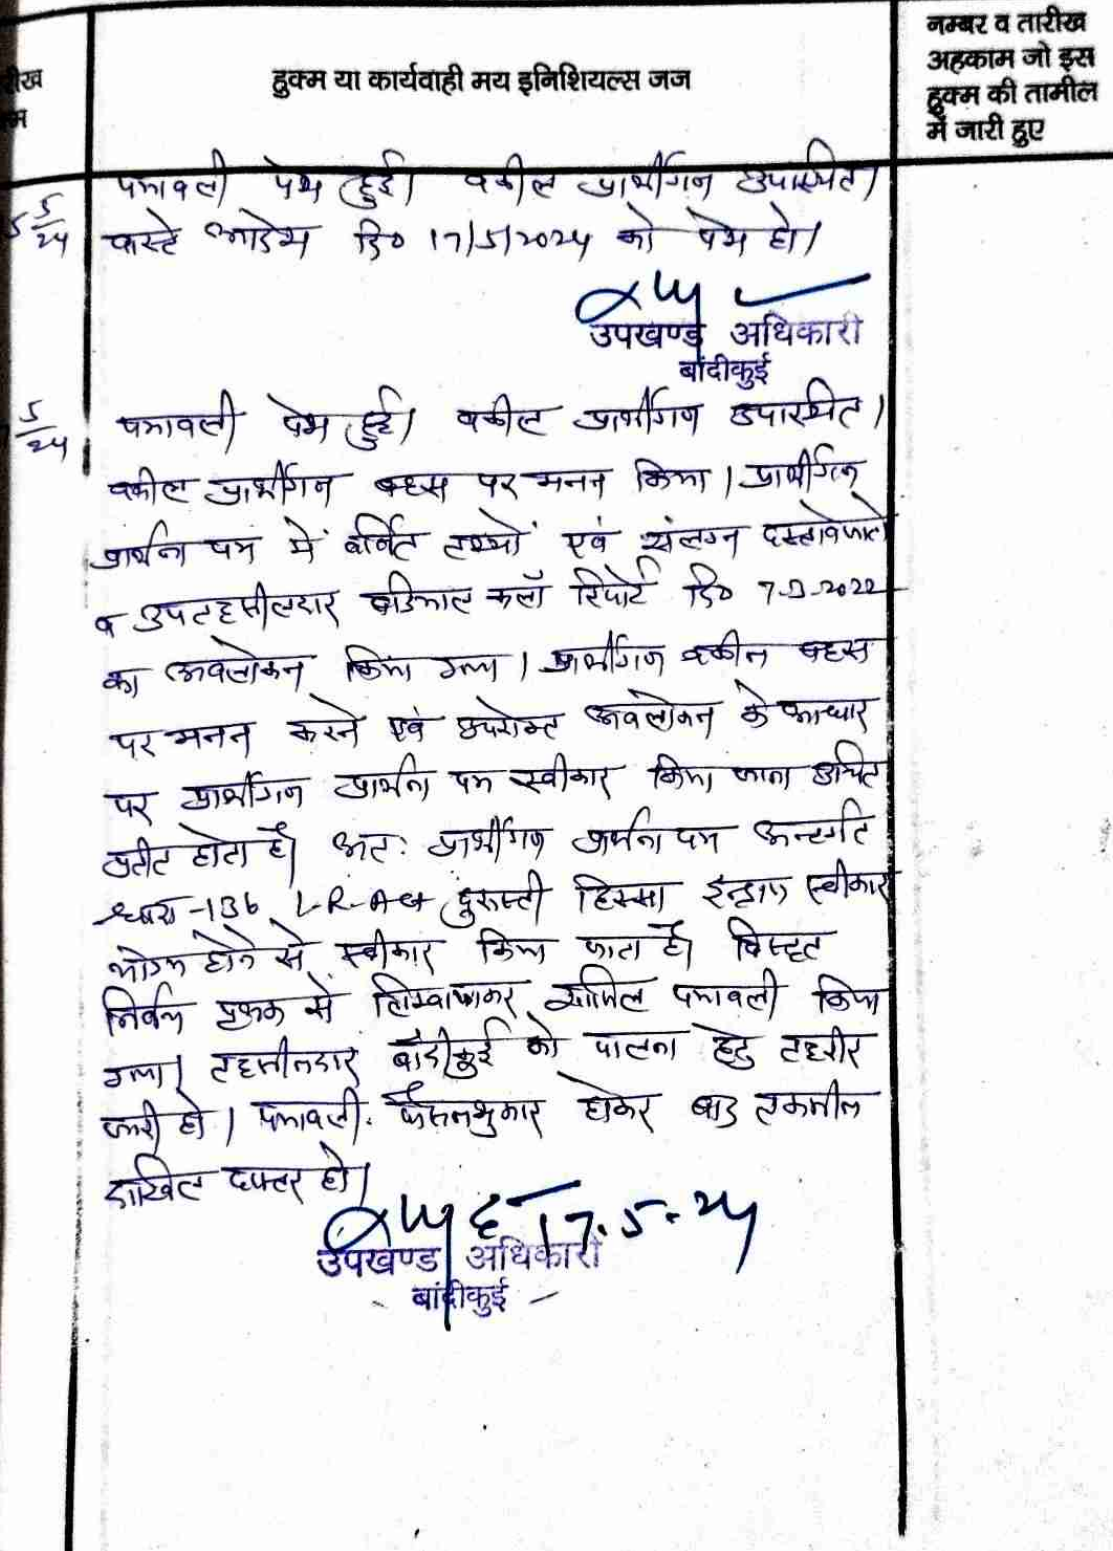 रीख
म
हुक्म या कार्यवाही मय इनिशियल्स जज
नम्बर व तारीख
अहकाम जो इस
हुक्म की तामील
में जारी हुए
5
24
पत्रावली पेश हुई। वकील प्रार्थीगण उपास्थित।
वास्ते आदेश दि० 17/5/2024 को पेश हो।
उपखण्ड अधिकारी
बांदीकुई
5
24
पत्रावली पेश हुई। वकील प्रार्थीगण उपास्थित।
वकील प्रार्थीगण बहस पर मनन किया। प्रार्थीगण
प्रार्थना पत्र में वर्णित तथ्यों एवं संलग्न दस्तावेजात
व उपतहसीलदार बडियाल कलाँ रिपोर्ट दि० 2022
का अवलोकन किया गया। प्रार्थीगण वकील बहस
पर मनन करने एवं उपरोक्त अवलोकन के आधार
पर प्रार्थीगण प्रार्थना पत्र स्वीकार किया जाना उचित
प्रतीत होता है। अतः प्रार्थीगण प्रार्थना पत्र अन्तर्गत
धारा-136 L-R-Act दुरुस्ती हिस्सा इन्द्राज स्वीकार
योग्य होने से स्वीकार किया जाता है। विस्तृत
निर्णय पृथक से लिखवाकर शामिल पत्रावली किया
गया। तहसीलदार बांदीकुई को पालना हेतु तहरीर
जारी हो। पत्रावली फैसलशुमार होकर बाद तकमील
दाखिल दफ्तर हो।
17.5.24
उपखण्ड अधिकारी
बांदीकुई